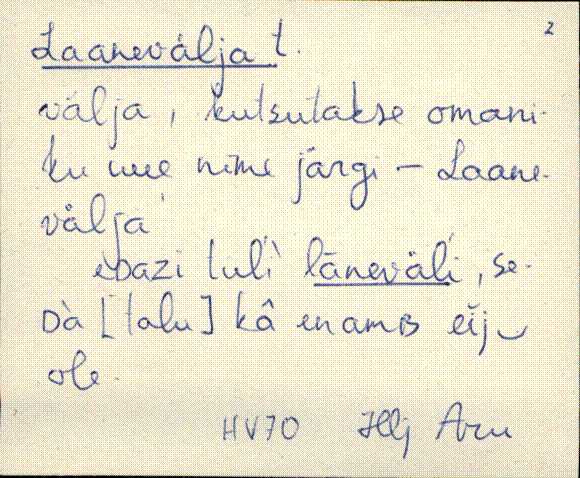 2
Laanevälja t.
välja, kutsutakse omani-
ku uue nime järgi – Laane-
välja
eᴅazi tulì lāneväli, se-
ᴅà [talu] kâ enamʙ eìj‿
ole.
HV70 Hlj Aru